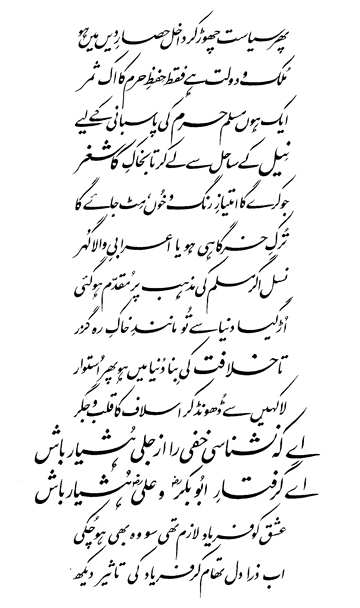 پھر سیاست چھوڑ کر داخل حصارِ دیں میں ہو
مُلک و دولت ہے فقط حفظِ حرم کا اک ثمر
ایک ہوں مسلم حرم کی پاسبانی کے لیے
نیل کے ساحل سے لے کر تا بخاکِ کاشغر
جو کرے گا امتیازِ رنگ و خُوں، مِٹ جائے گا
تُرکِ خرگاہی ہو یا اعرابیِ والا گُہر
نسل اگر مسلم کی مذہب پر مُقدّم ہو گئی
اُڑ گیا دنیا سے تُو مانندِ خاکِ رہ گزر
تا خلافت کی بِنا دُنیا میں ہو پھر اُستوار
لا کہیں سے ڈھونڈ کر اسلاف کا قلب و جگر
اے کہ نشناسی خفی را از جلی ہُشیار باش
اے گرفتارِ ابُوبکرؓ و علیؓ ہُشیار باش
عشق کو فریاد لازم تھی سو وہ بھی ہو چُکی
اب ذرا دل تھام کر فریاد کی تاثیر دیکھ